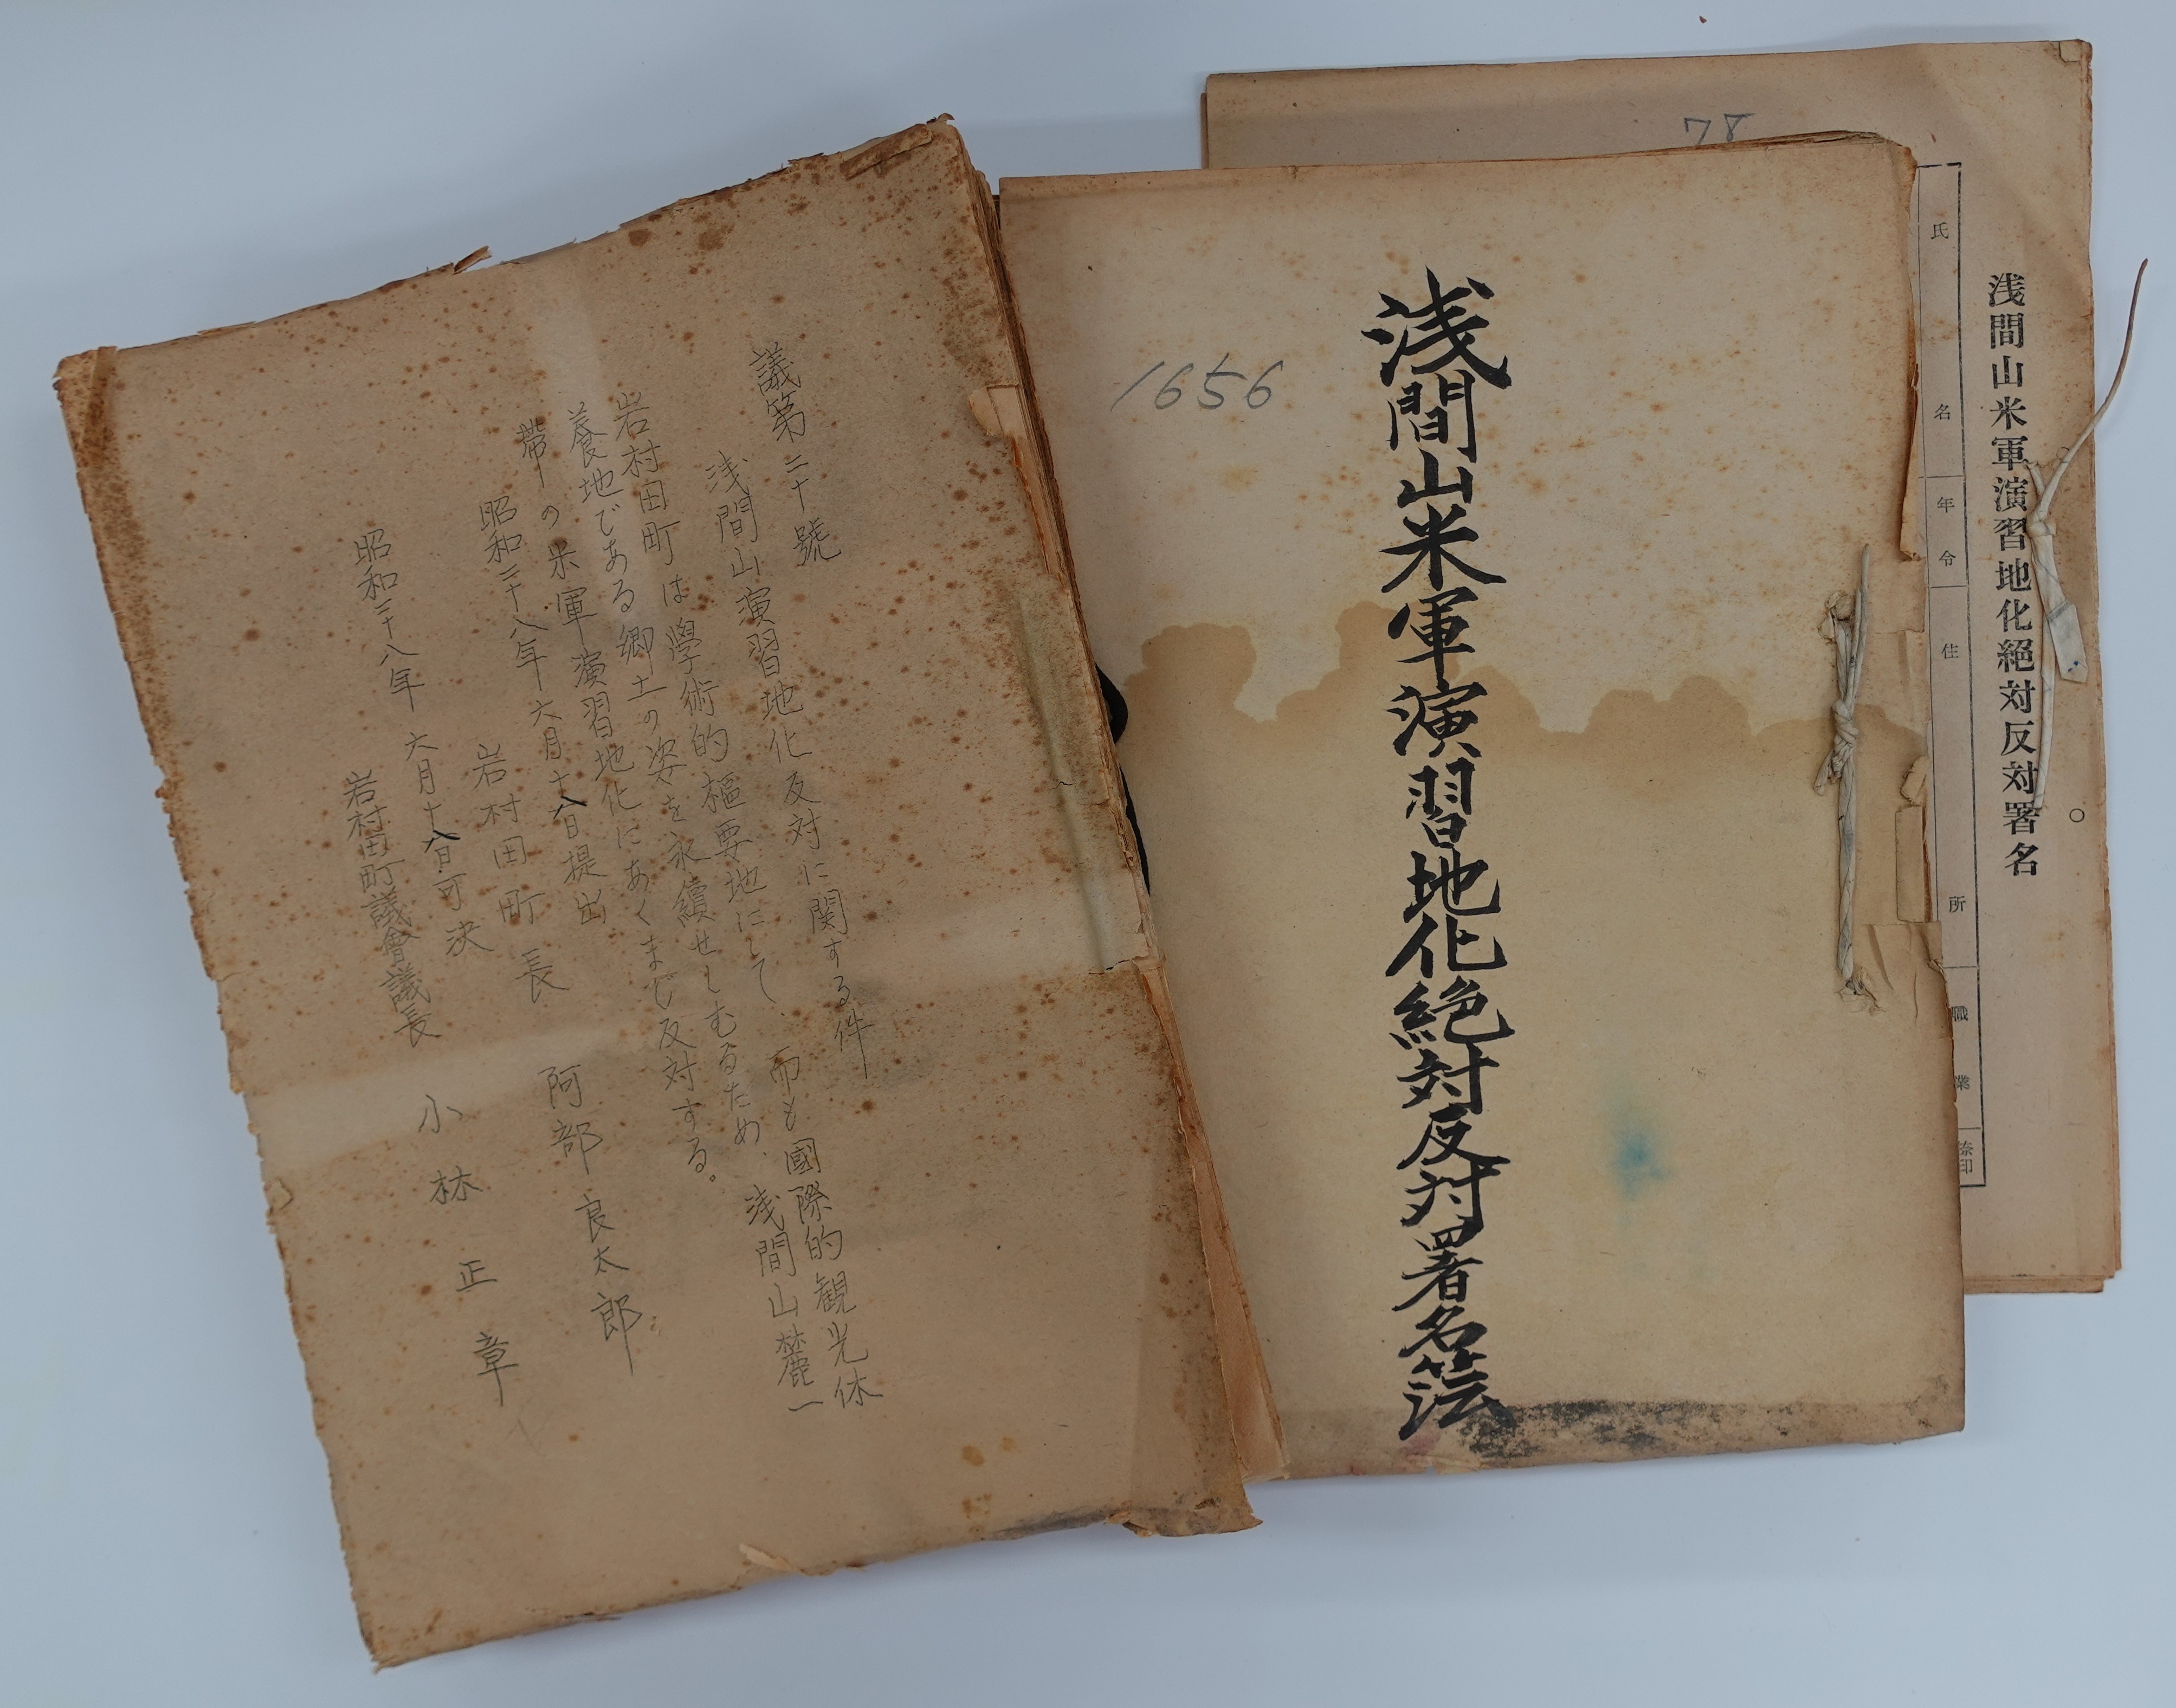 78
浅間山米軍演習地化絶対反対署名
氏名 年令 住所 職業 捺印
1656
浅間山米軍演習地化絶対反対署名
議第二十號
浅間山演習地化反対に関する件
岩村田町は學術的樞要地にして、而も國際的観光休
養地である郷土の姿を永續せしむるため、浅間山麓一
帯の米軍演習地化にあくまじ反対する。
昭和二十八年六月十八日提出
岩村田町長 阿部良太郎
昭和二十八年六月十八日可決
岩村田町議會議長 小林正章